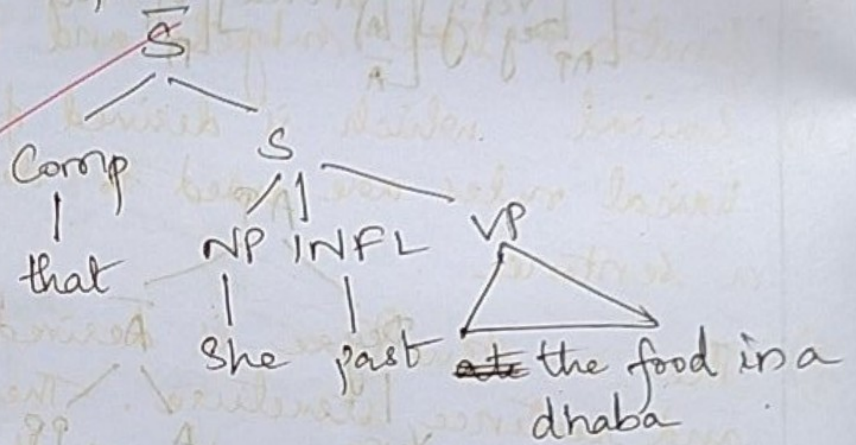 S̅
Comp S
that NP INFL VP
She past the food in a
dhaba